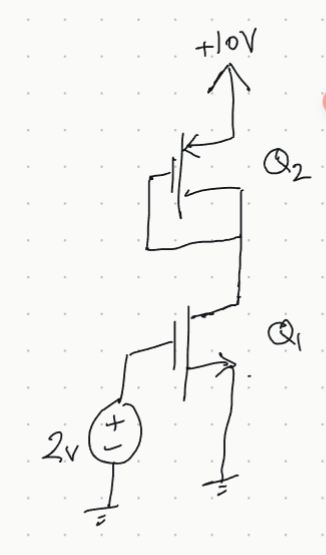 +10V
Q2
Q1
+
−
2v